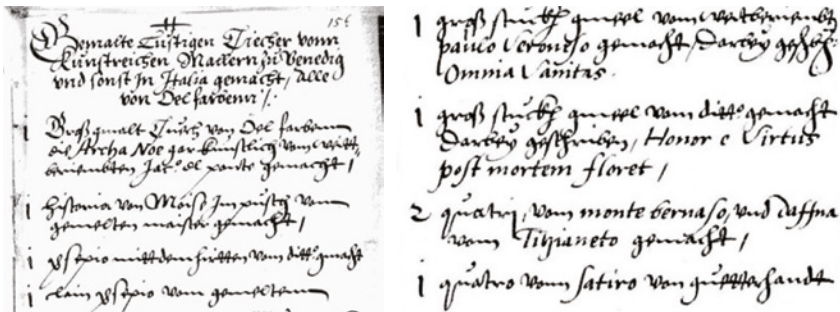 156
Gemalte Lustigen Tiecher vonn
Kunstreichen Mallern zu Venedig
vnd sonst In Italia gemacht, Alle
von Oel farbenn /:
1 Groß gmalt Tuech von Oel farbenn
die Archa Noe gar kunstlich vom weit-
beriembten Jac.º del ponte gemacht /
1 historia von Moise Im pusch vom
gemelten maister gemacht /
1 presepio mit den hirtten vom ditt.º gmacht
1 clain presepio vom gemeltenn
1 groß stuckh gmeel vom weitberiembten
paulo Veroneso gemacht, darbey
Omnia Vanitas.
1 groß stuckh gmeel vom ditt.º gemacht
Darbey geschriben, Honor e Virtus
post mortem floret /
2 quatri, vom monte bernaso, vnd daffna
vom Titzianeto gemacht /
1 quatro vonn satiro von guetter handt